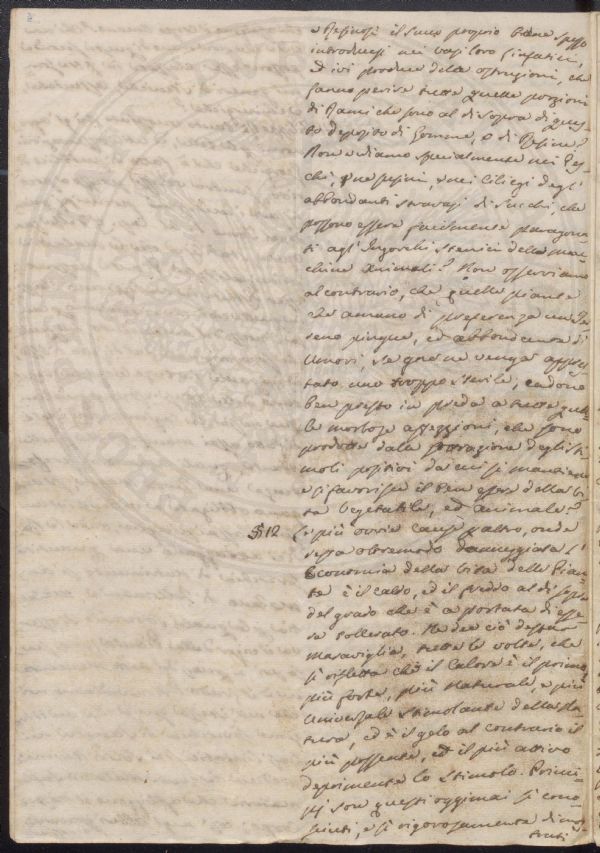 e Resinosi il suco proprio bene spesso
introducesi nei vasi loro linfatici,
ed ivi produce delle ostruzioni, che
fanno perire tutte quelle porzioni
di Rami che sono al di sopra di ques-
to deposito di Gomme, o di Resine?
Non vediamo specialmente nei Pes-
chi, e nei Ciliegi degl'
abbondanti stravasi di Succhi, che
possono essere facilmente paragona-
ti agl' Ingorghi stenici delle mac-
chine Animali? Non osserviamo
al contrario, che quelle piante
che amano di preferenza un Ter-
reno pingue, ed abbondanza di
Umori, se gne ne venga appres-
tato uno troppo sterile, cadono
ben presto in preda a tutte quel-
le morbose affezzioni, che sono
prodotte dalla sottrazione degli sti-
moli positivi da cui si mantiene
e si favorisce il ben essere della vi-
ta Vegetabile, ed animale?
§ 12 Le più ovvie cause altro, onde
resta oltremodo danneggiata l'
Economia della vita delle Pian-
te è il caldo, ed il freddo al di sopra
del grado che è a portata di esse-
re tollerato. Ne dee ciò destar
maraviglia, tutte le volte, che
si rifletta che il Calore è il primo
più forte, più naturale, e più
universale stimolante della Na-
tura, ed è il gelo al contrario il
più possente, ed il più attivo
deprimente lo stimolo. Princi-
pj son questi oggimai sì cono-
sciuti, e sì rigorosamente dimos-
trati